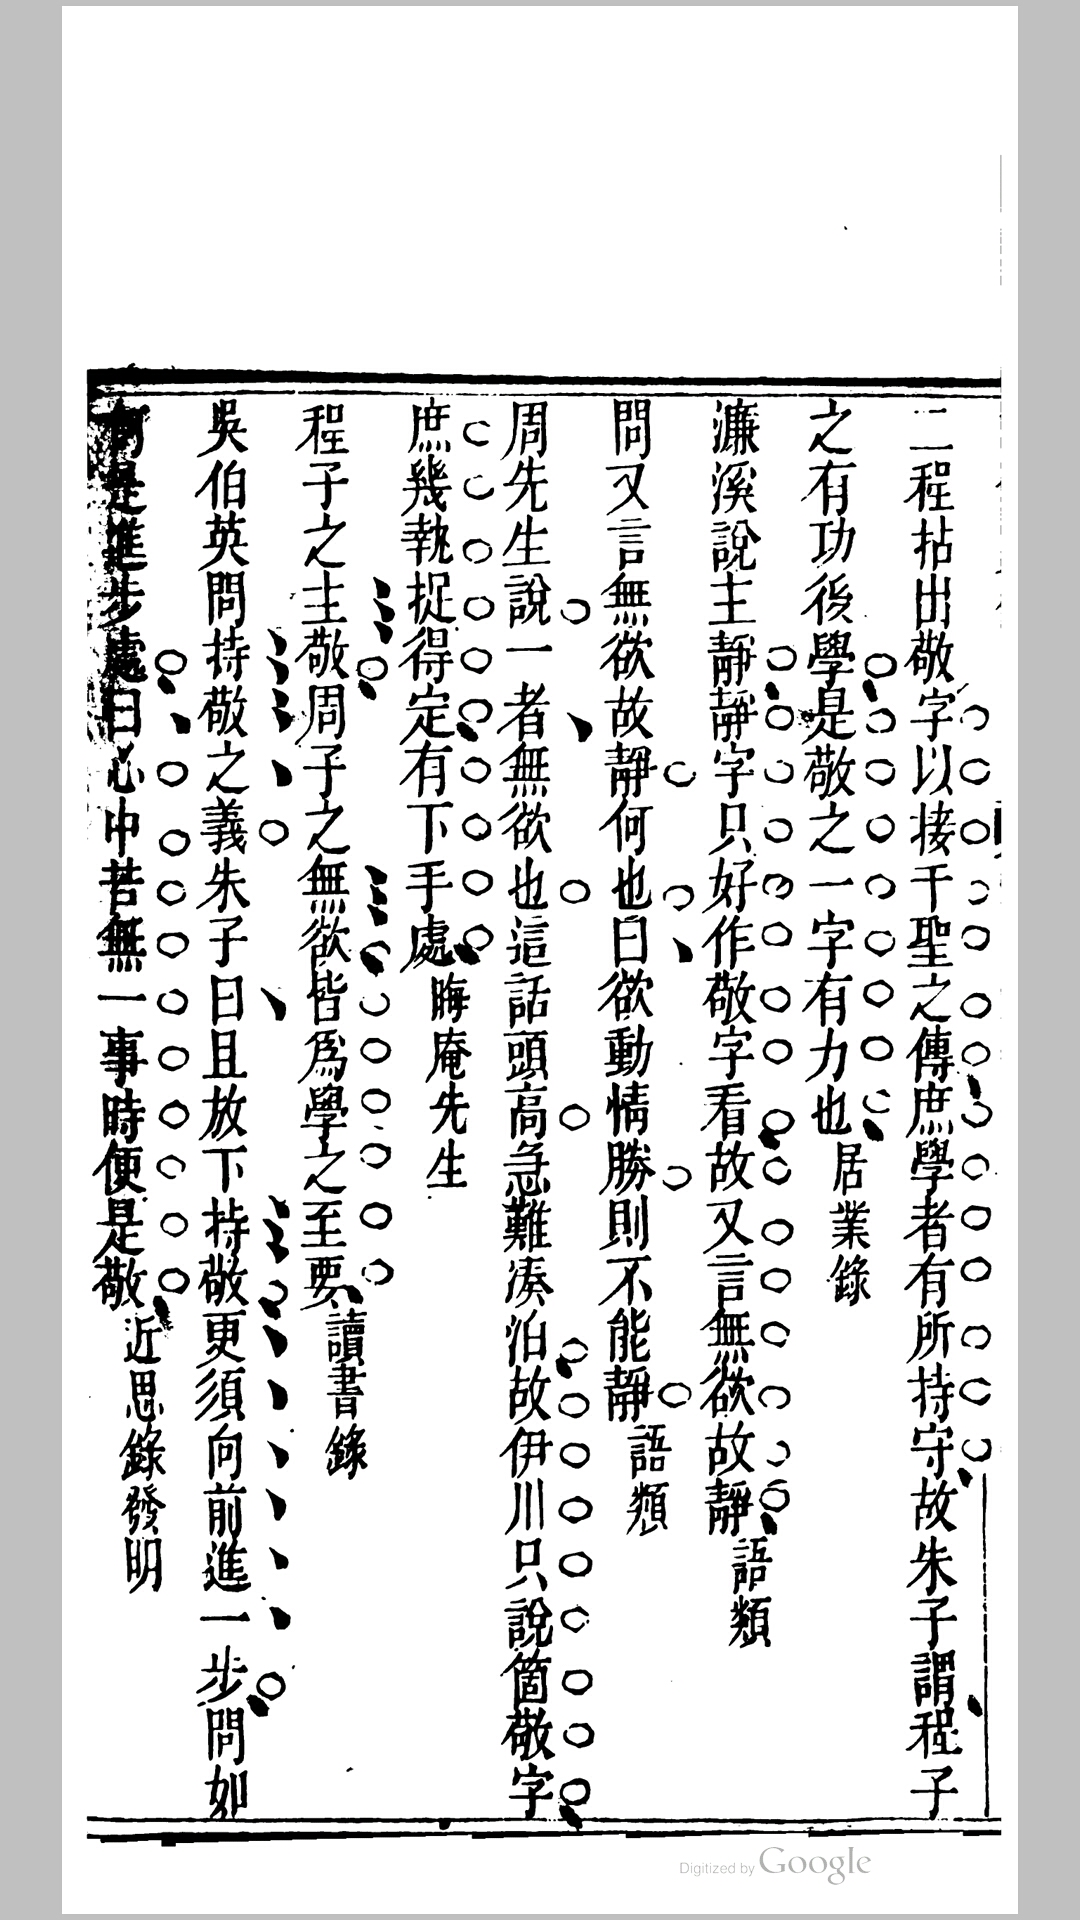 二程拈出敬字以接千聖之傳庶學者有所持守故朱子謂程子
之有功後學是敬之一字有力也居業錄
濂溪說主靜靜字只好作敬字看故又言無欲故靜語類
問又言無欲故靜何也曰欲動情勝則不能靜語類
周先生說一者無欲也這話頭高急難湊泊故伊川只說箇敬字
庶幾執捉得定有下手處晦庵先生
程子之主敬周子之無欲皆爲學之至要讀書錄
吳伯英問持敬之義朱子曰且放下持敬更須向前進一步問如
何是進步處曰心中若無一事時便是敬近思錄發明
Digitized by Google